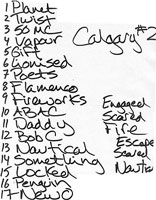 1 Planet
2 Twist
3 50 MC
4 Vapour
5 Gift
6 Lionised
7 Poets
8 Flamenco
9 Fireworks
10 ABAC
11 Daddy
12 Bob C
13 Nautical
14 Something
15 Locked
16 Penguin
17 New O
Calgary #2
Engaged
Scared
Fire
Escape
Scared